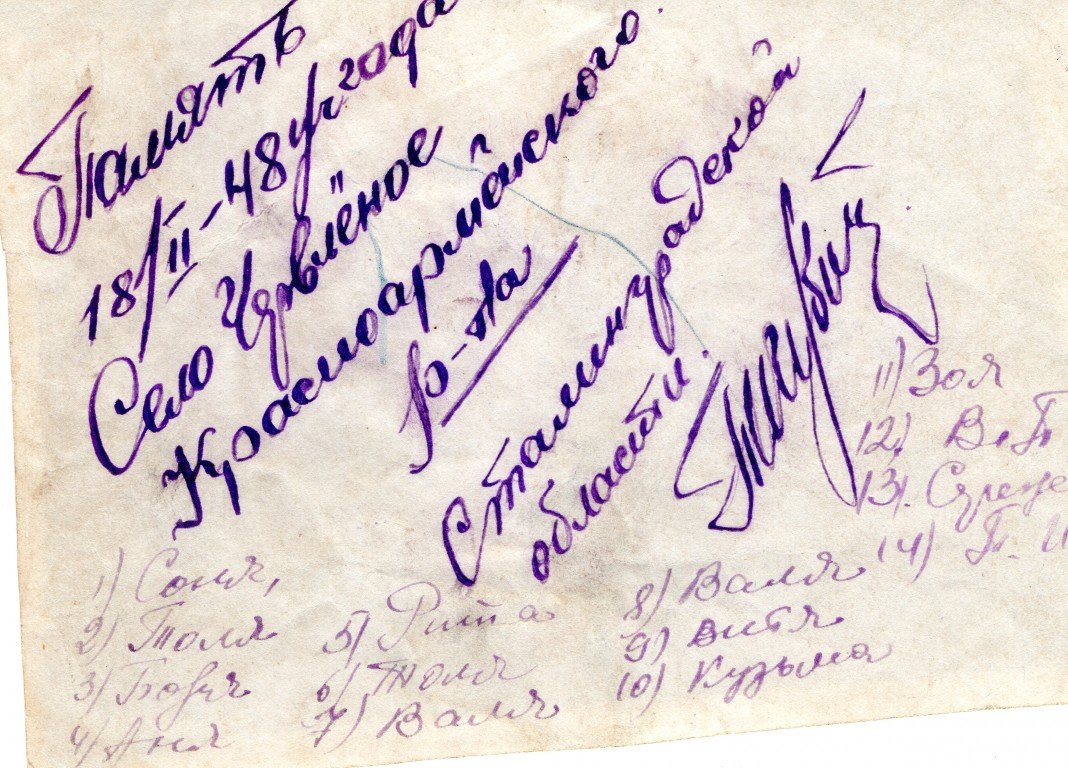 Память
18/II-48 уч года
Село Цявлёное
Красноармейского
р-на
Сталинградской
области.
1) Соня,
2) Толя
3) Боря
4) Аня
5) Рита
6) Толя
7) Валя
8) Валя
9) Витя
10) Кузьма
11) Зоя
12) В.П
13) Сереже
14) П. И